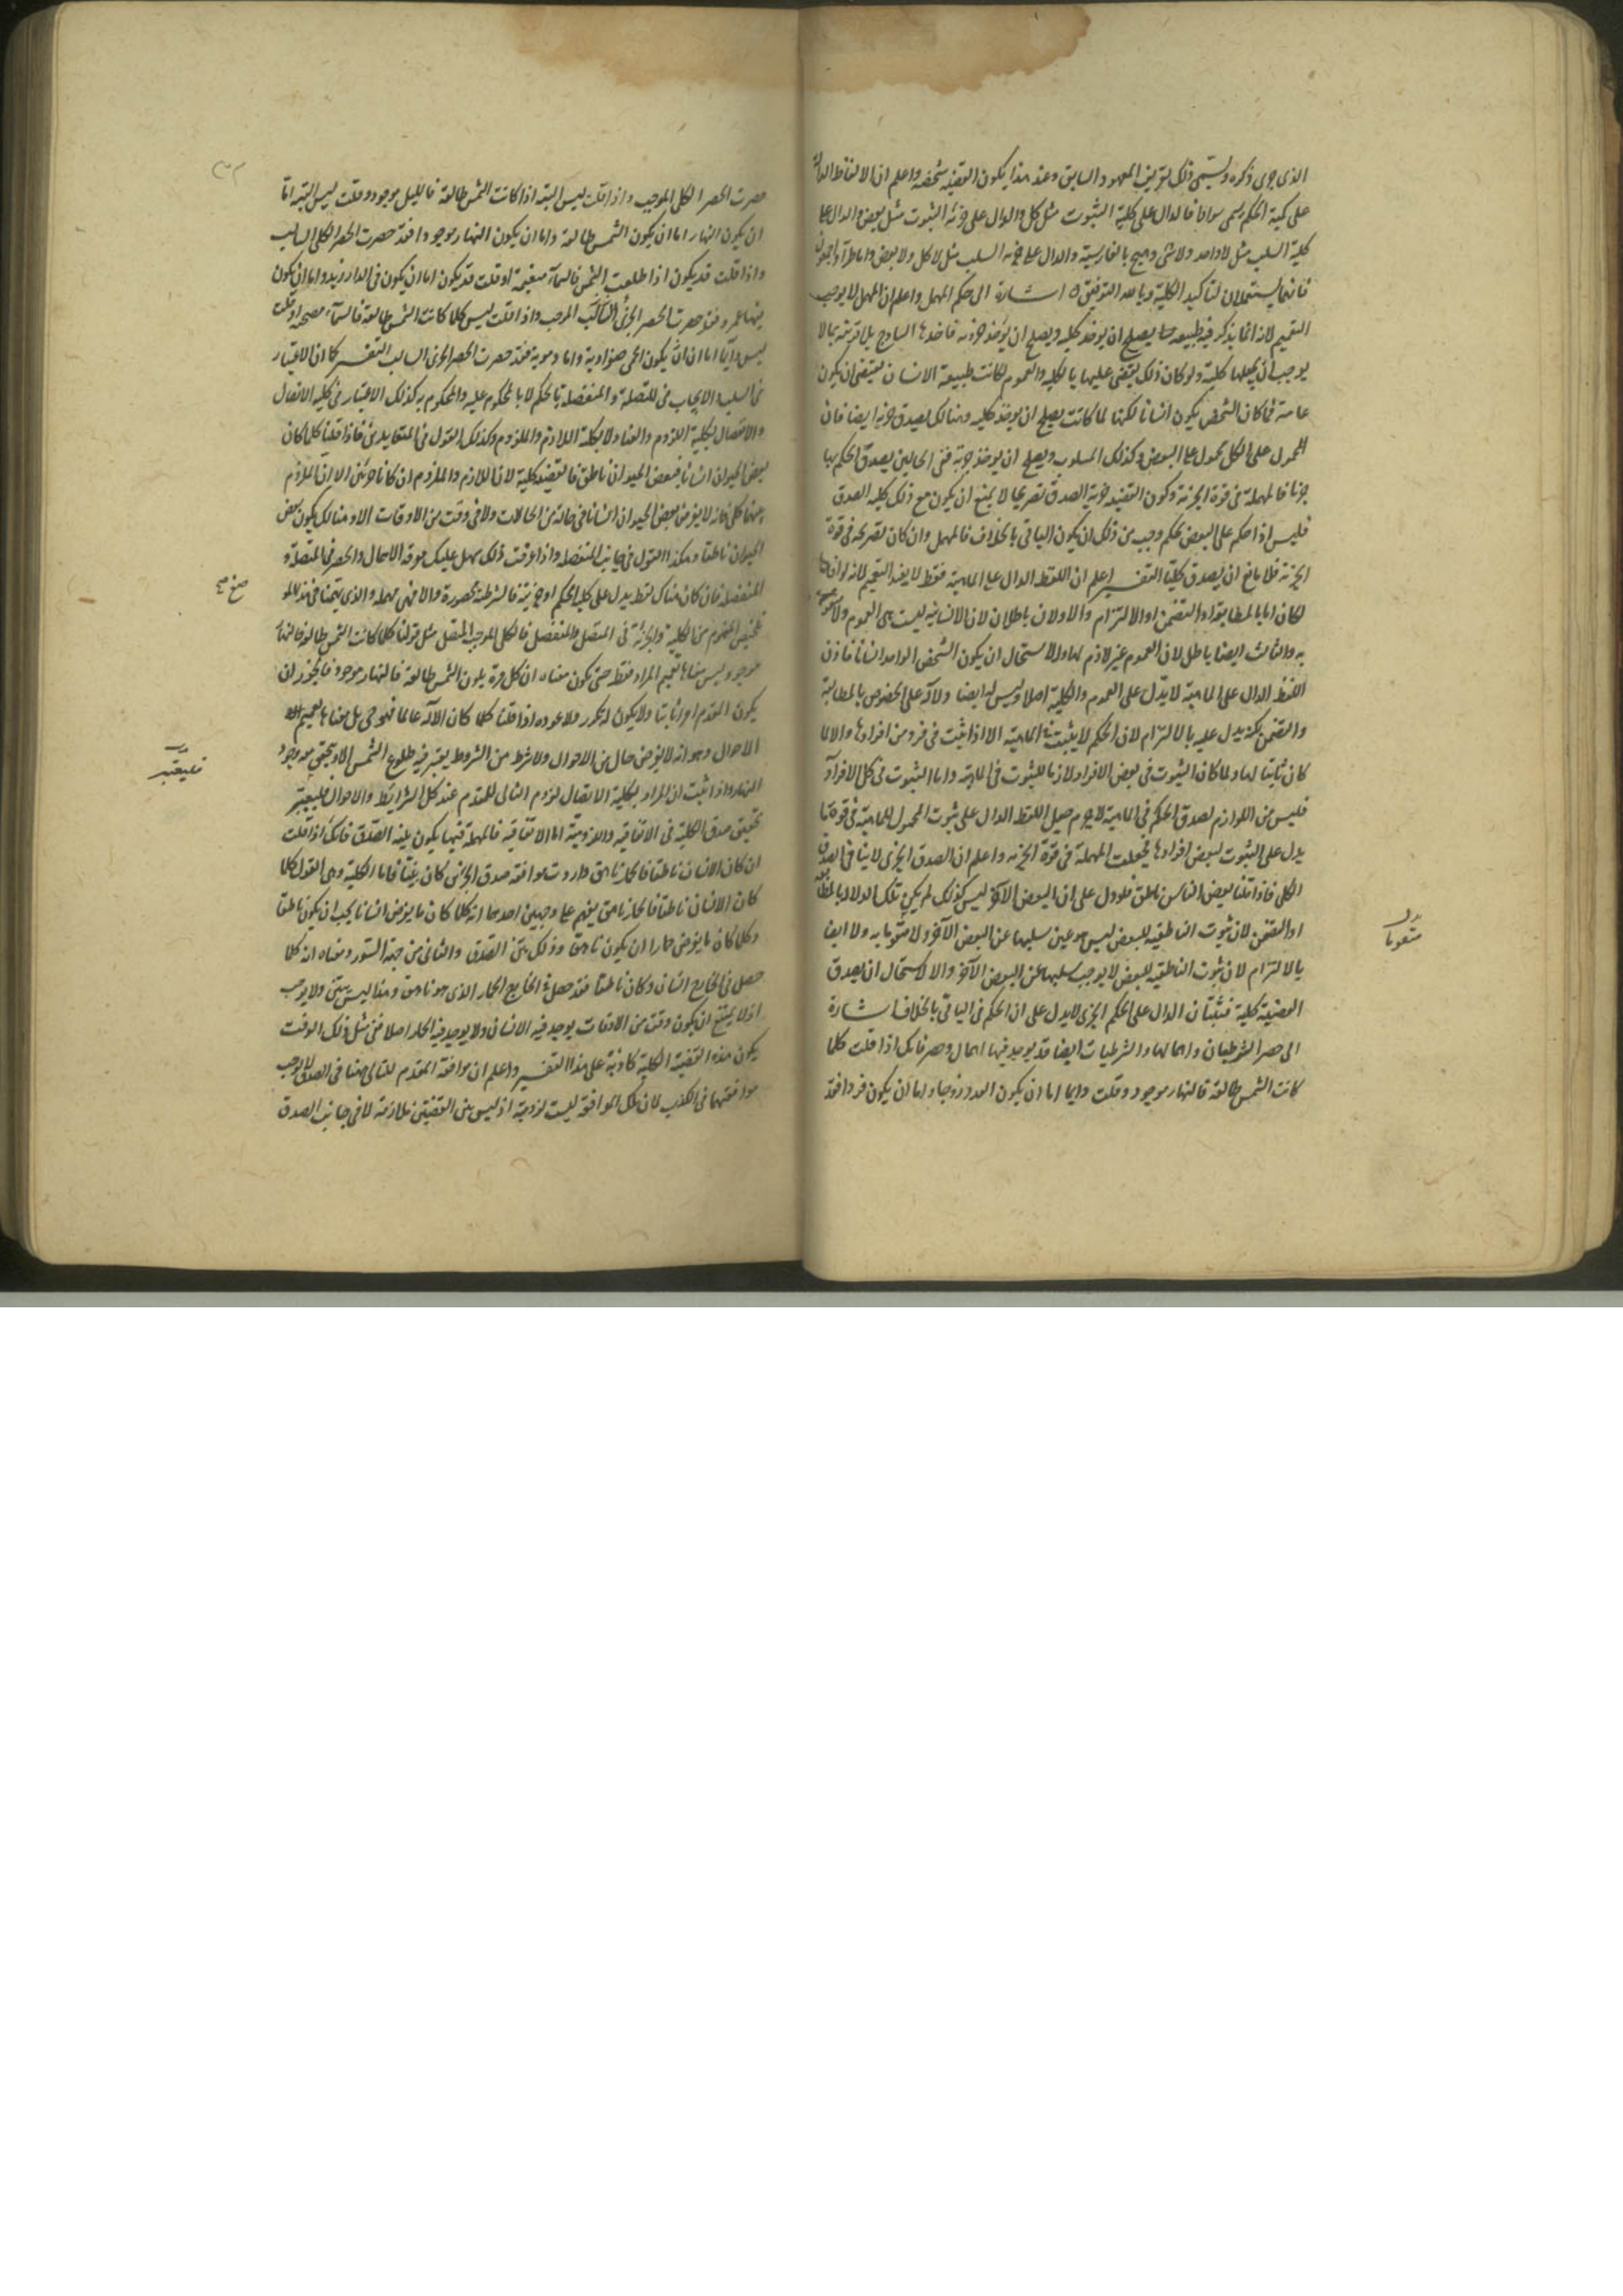 الذى جرى ذكره ويسمى ذلك تعريف المعهود السابق وعند هذا يكون القضيه شخصه واعلم ان الالفاظ الدالة
على كمية الحكم يسمى سوراً فالدال على كلية الثبوت مثل كل والدال على جزئية الثبوت مثل بعض والدال على
كلية السلب مثل لا واحد ولا شى وهيچ بالفارسية والدال على جزئية السلب مثل لا كل ولا بعض واما طراً واجمعون
فانهما يستعملان لتاكيد الكلية وبالله التوفيق اشارة الى حكم المهمل واعلم ان المهمل لا يوجب
التعميم لانه انما يذكر فيه طبيعه يصلح ان يوخذ كليه ويصلح ان يوخذ جزئيه فاخذها الساذج بلا قرينة مما لا
يوجب ان يجعلها كلية ولو كان ذلك يقتضى عليها بالكليه والعموم لكانت طبيعة الانسان يقتضى ان يكون
عامة فما كان الشخص يكون انسانا لكنها لما كانت يصلح ان يوخذ كليه وهنالك يصدق جزئيه ايضا فان
المحمول على الكل محمول على البعض وكذلك المسلوب ويصلح ان يوخذ جزئية ففى الحالين يصدق الحكم بها
جزئيا فالمهملة فى قوة الجزئية وكون القضيه جزئية الصدق تصريحا لا يمنع ان يكون مع ذلك كليه الصدق
فليس اذا حكم على البعض بحكم وجب من ذلك ان يكون الباقى بالخلاف فالمهمل وان كان تصريحه فى قوة
الجزئية فلا مانع ان يصدق كليا التفسير اعلم ان اللفظ الدال على الماهية فقط لا يفيد التعميم لانه لو افادها
لكان اما بالمطابقة او التضمن او الالتزام والاولان باطلان لان الانسانيه ليست هى العموم ولا
به والثالث ايضا باطل لان العموم غير لازم لها والا لاستحال ان يكون الشخص الواحد انسانا فاذن
اللفظ الدال على الماهية لا يدل على العموم والكلية اصلا وليس له ايضا دلالة على الخصوص بالمطابقة
والتضمن لكنه يدل عليه بالالتزام لان الحكم لا يثبت فى الماهية الا اذا ثبت فى فرد من افرادها والا لما
كان ثابتا لها ولما كان الثبوت فى بعض الافراد لازما للثبوت فى الماهية واما الثبوت فى كل الافراد
فليس من اللوازم لصدق الحكم فى الماهية لا جرم جعل اللفظ الدال على ثبوت المحمول للماهية فى قوة ما
يدل على الثبوت لبعض افرادها فجعلت المهملة فى قوة الجزئيه واعلم ان الصدق الجزى لا ينافى الصدق
الكلى فاذا قلنا بعض الناس ناطق فلو دل على ان البعض الآخر ليس كذلك لم يكن تلك الدلالة بالمطابقة
او التضمن لان ثبوت الناطقيه للبعض ليس هو عين سلبها عن البعض الآخر ولا متقوما به ولا ايضا
بالالتزام لان ثبوت الناطقيه للبعض لا يوجب سلبها عن البعض الآخر والا لاستحال ان يصدق
القضية كلية فثبت ان الدال على الحكم الجزى لا يدل على ان الحكم فى الباقى بالخلاف اشارة
الى حصر الشرطيات واهمالها والشرطيات ايضا قد يوجد فيها اهمال وحصر فانك اذا قلت كلما
كانت الشمس طالعة فالنهار موجود وقلت دايما اما ان يكون العدد زوجا واما ان يكون فردا فقد
حصرت الحصر الكلى الموجب واذا قلت ليس البته اذا كانت الشمس طالعة فالليل موجود وقلت ليس البته اما
ان يكون النهار اما ان يكون الشمس طالعة واما ان يكون النهار موجودا فقد حصرت الحصر الكلى السالب
واذا قلت قد يكون اذا طلعت الشمس فالسمآء متغيمة او قلت قد يكون اما ان يكون فى الدار زيد واما ان يكون
فيها عمرو فقد حصرت الحصر الجزئى الموجب واذا قلت ليس كلما كانت الشمس طالعة فالسمآء مصحيه او قلت
ليس دايما اما ان يكون الحمى صفراوية واما دموية فقد حصرت الحصر الجزى السالب التفسير كما ان الاعتبار
فى السلب والايجاب فى المتصلة والمنفصله بالحكم لا بالمحكوم عليه والمحكوم به كذلك الاعتبار فى كليه الاتصال
والانفصال بكلية اللزوم والعناد لا بكلية اللازم والملزوم وكذلك القول فى المتعاندين فاذا قلنا كلما كان
بعض الحيوان انسانا فبعض الحيوان ناطق فالقضيه كلية لان اللازم والملزوم ان كانا جزئين الا ان اللزوم
بينهما كلى فانه لا يفرض بعض الحيوان انسانا فى حالة من الحالات ولا فى وقت من الاوقات الا وهنالك يكون بعض
الحيوان ناطقا وهكذا القول فى جانب المنفصله واذا عرفت ذلك سهل عليك معرفة الاهمال والحصر فى المتصلة و
المنفصله فان كان هناك لفظ يدل على كلية الحكم او جزئيته فالشرطية محصورة والا فهى مهملة والذى يهمنا فى هذا
تلخيص المفهوم من الكلية والجزئية فى المتصل والمنفصل فالكلى الموجب المتصل مثل قولنا كلما كانت الشمس طالعة فالنهار
موجود وليس معناها تعميم المراد فقط حتى يكون معناه ان كل مرة يكون الشمس طالعة فالنهار موجود فانه يجوز ان
يكون المقدم امرا ثابتا ولا يكون له تكرر ولا عود واذا قلنا كلما كان الاله عالما فهو حى بل معناها تعميم
الاحوال وهو انه لا يفرض حال من الاحوال ولا شرط من الشروط يعتبر فيه طلوع الشمس الا ويتحقق معه وجود
النهار واذا ثبت ان المراد بكلية الاتصال لزوم التالى للمقدم عند كل الشرايط والاحوال فليعتبر
تحقيق صدق الكلية فى الاتفاقيه واللزومية اما الاتفاقيه فالمهملة فيها يكون بينه الصدق فانك اذا قلت
ان كان الانسان ناطقا فالحمار ناهق واردت موافقة صدق الجزئى كان بينا فاما الكلية وهى القول كلما
كان الانسان ناطقا فالحمار ناهق يفهم على وجهين احدهما انه كلما كان ما يفرض انسانا يجب ان يكون ناطقا
وكلما كان ما يفرض حمارا ان يكون ناهقا وذلك بين الصدق والثانى من جهة السور ومعناه انه كلما
حصل فى الخارج انسان وكان ناطقا فقد حصل فى الخارج الحمار الذى هو ناهق وهذا ليس ببين ولا يوجب
اذ لا يمتنع ان يكون وقت من الاوقات يوجد فيه الانسان ولا يوجد فيه الحمار اصلا ففى مثل ذلك الوقت
يكون هذه القضية الكلية كاذبة على هذا التفسير واعلم ان موافقة المقدم للتالى ههنا فى الصدق لا يوجب
موافقتهما فى الكذب لان تلك الموافقة ليست لزومية اذ ليس بين القضيتين ملازمة لا فى جانب الصدق
فليعتبر